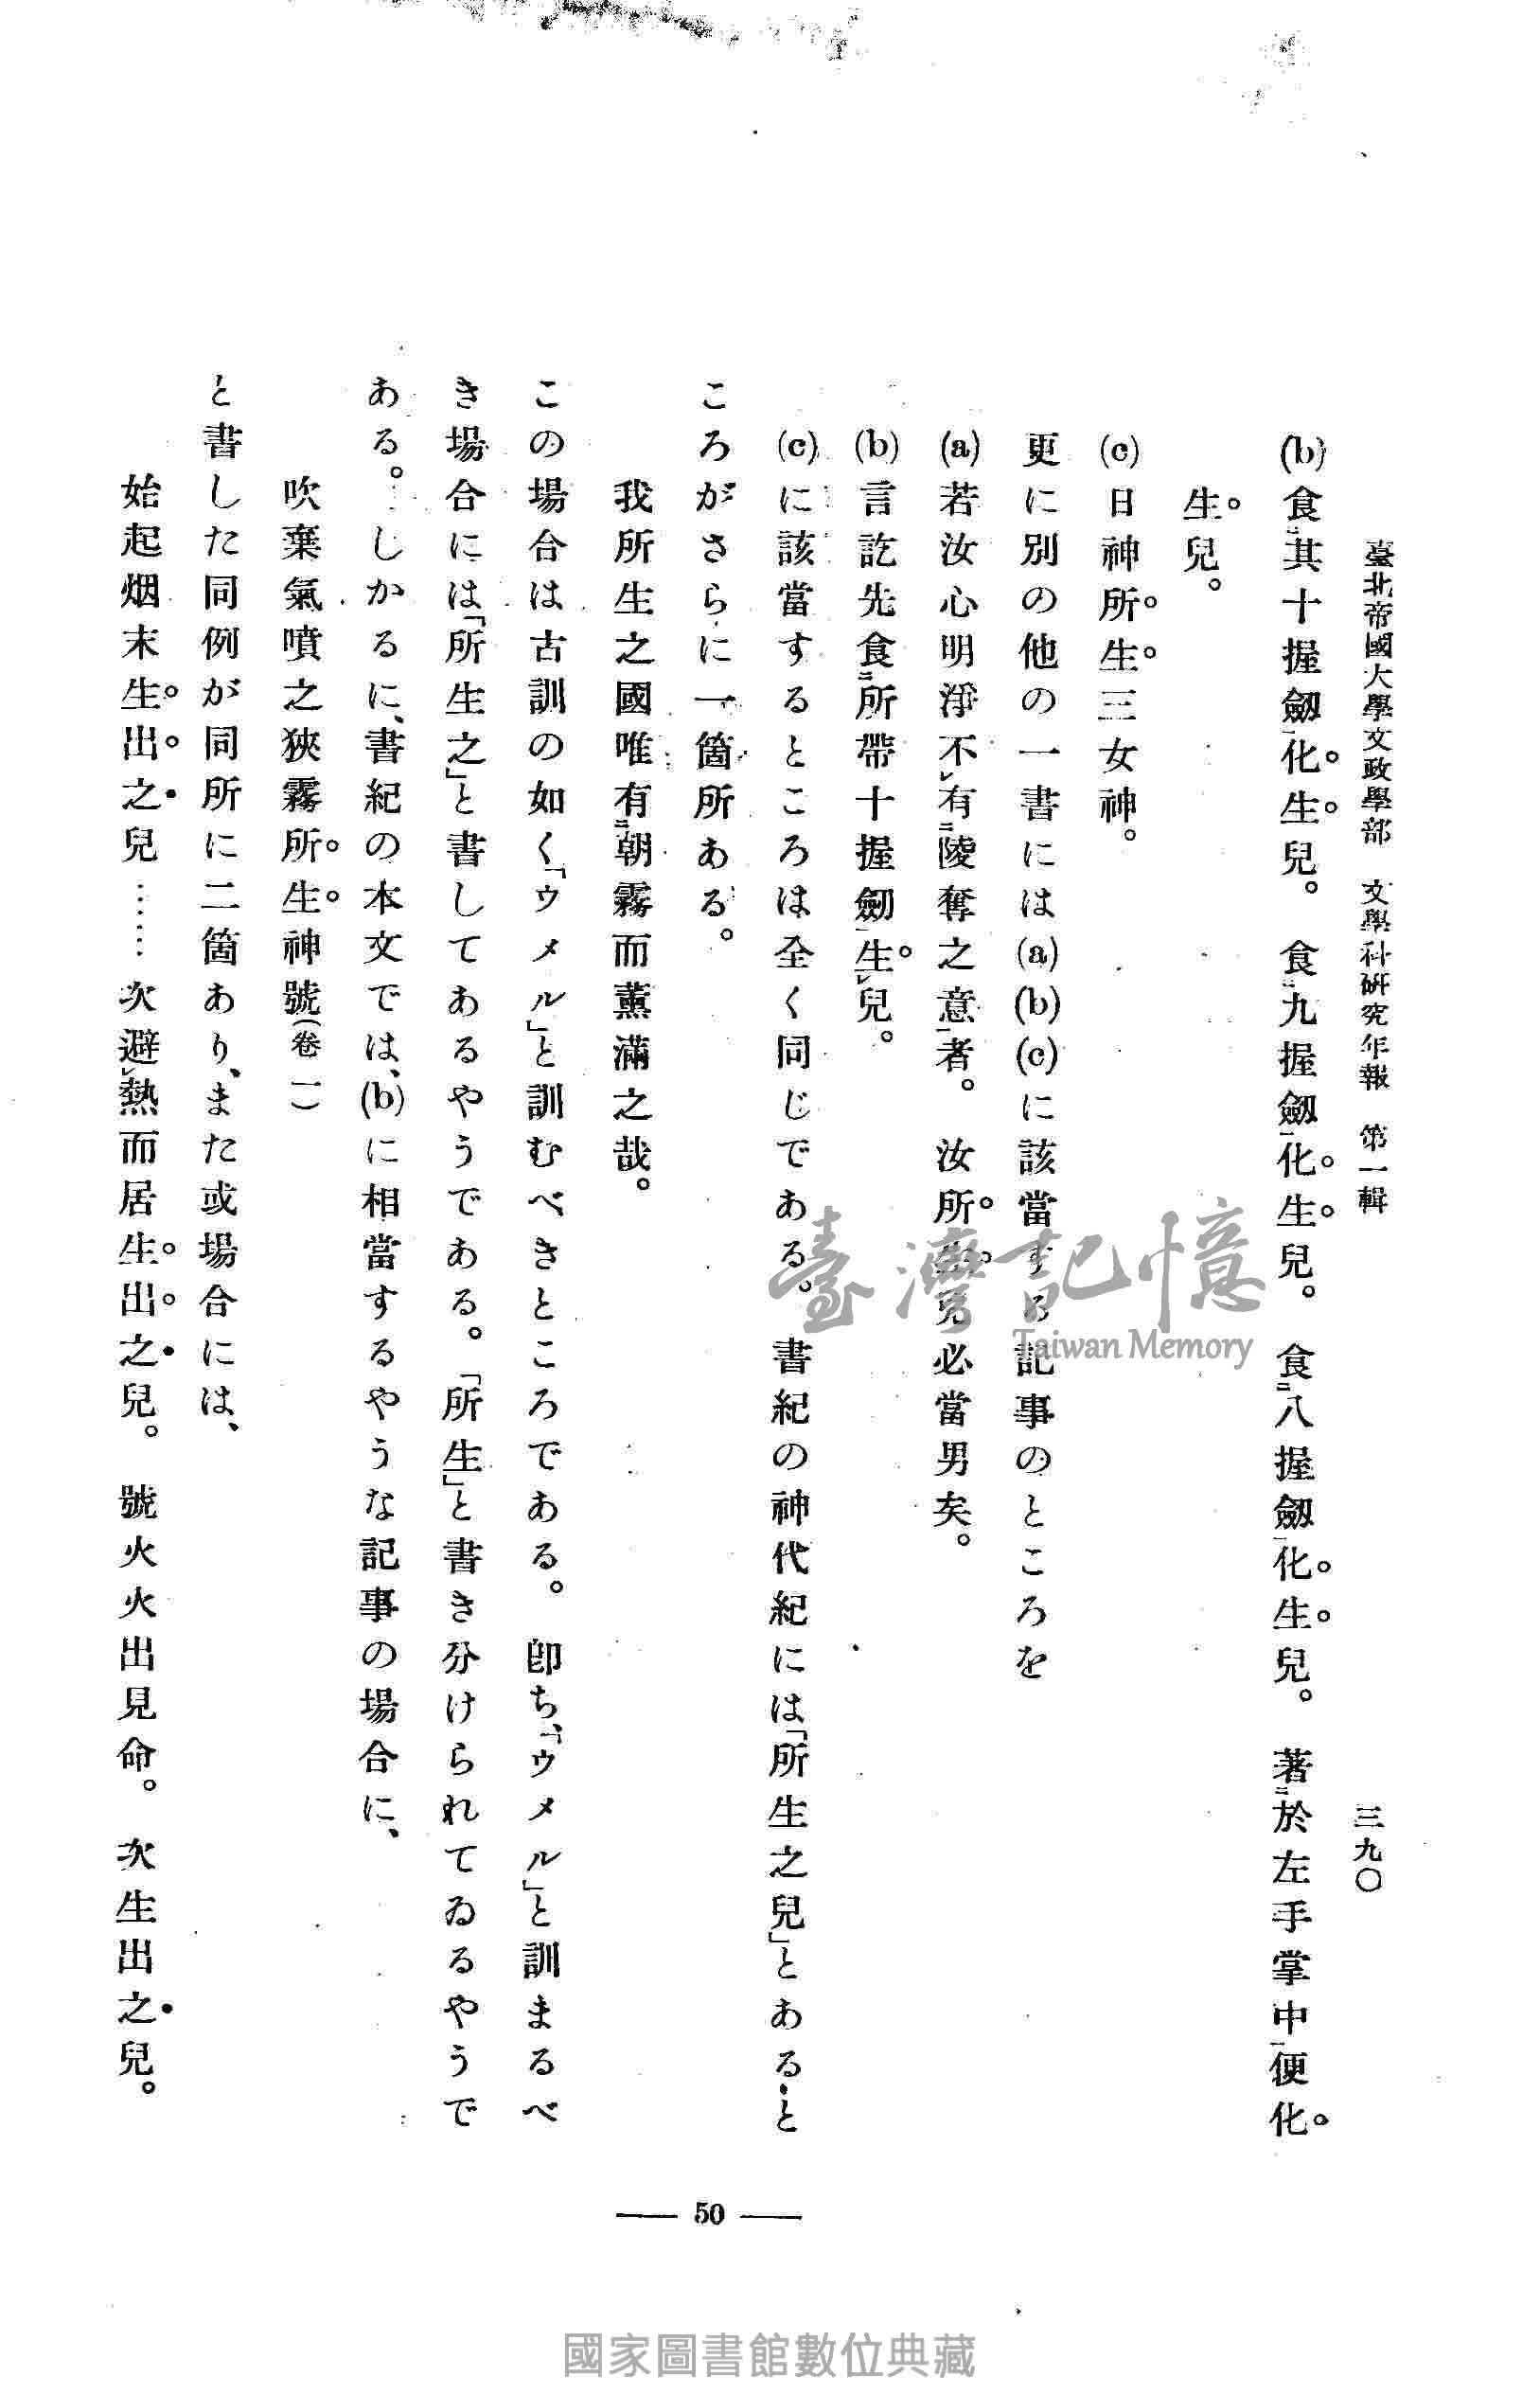 臺北帝國大學文政學部　文學科硏究年報　第一輯　三九〇
(b)食二其十握劒一化生兒。食二九握劒一化生兒。食二八握劒一化生兒。著二於左手掌中一便化
生兒。
(c)日神所生三女神。
更に別の他の一書には(a)(b)(c)に該當する記事のところを
(a)若汝心明淨不レ有二陵奪之意一者。汝所生兒必當男矣。
(b)言訖先食二所帶十握劒一生レ兒。
(c)に該當するところは全く同じである。書紀の神代紀には「所生之兒」とあると
ころがさらに一箇所ある。
我所生之國唯有二朝霧一而薰滿之哉。
この場合は古訓の如く「ウメル」と訓むべきところである。卽ち、「ウメル」と訓まるべ
き場合には「所生之」と書してあるやうである。「所生」と書き分けられてゐるやうで
ある。しかるに、書紀の本文では、(b)に相當するやうな記事の場合に、
吹棄氣噴之狹霧所生神號(卷一)
と書した同例が同所に二箇あり、また或場合には、
始起烟末生出之兒……次避レ熱而居生出之兒。號火火出見命。次生出之兒。
— 50 —
臺灣記憶
Taiwan Memory
國家圖書館數位典藏